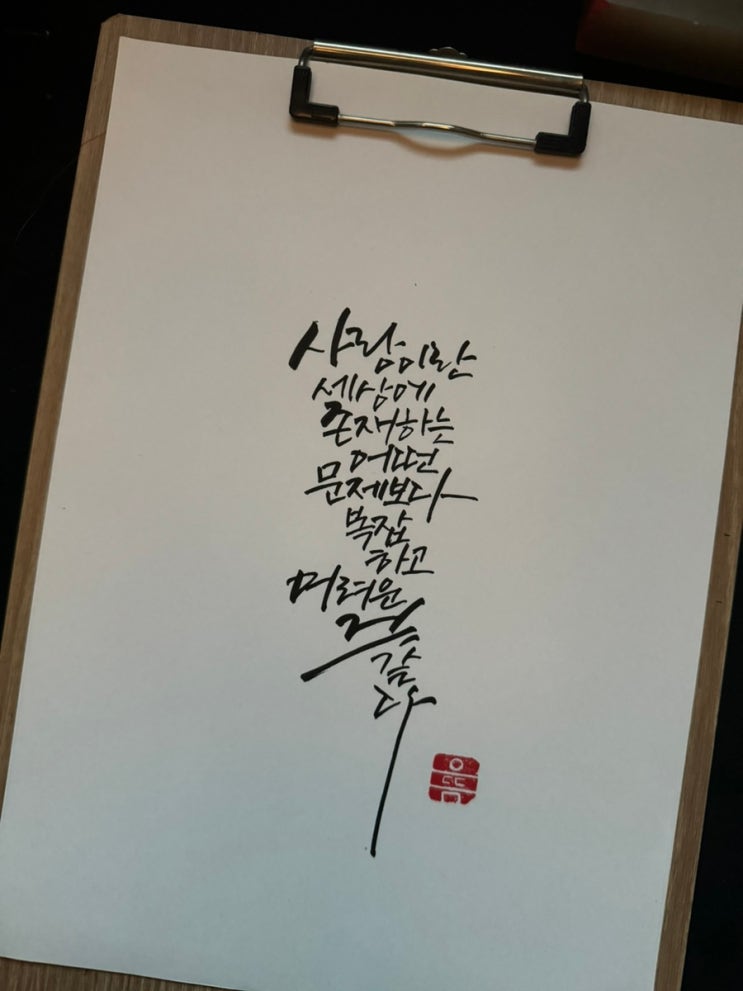 사랑이란
세상에
존재하는
어떤
문제보다
복잡
하고
어려운
것
같
다
으뜸